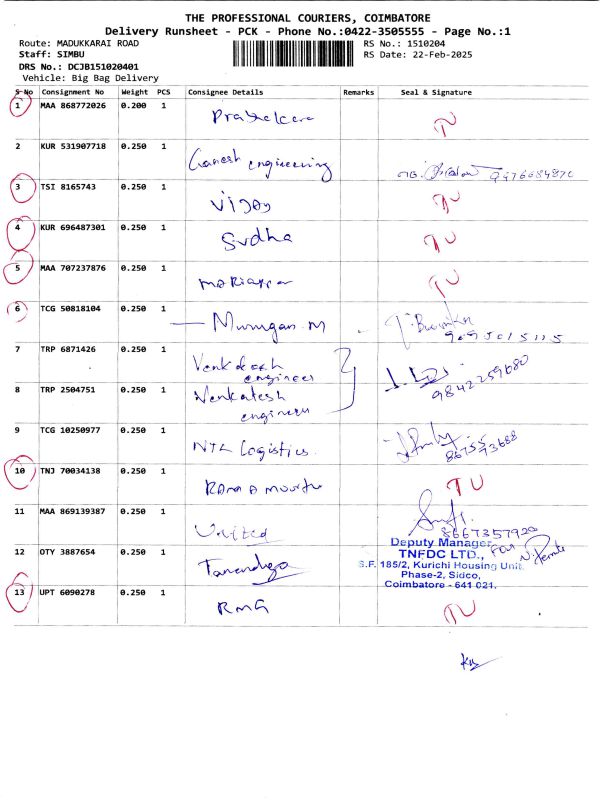 THE PROFESSIONAL COURIERS, COIMBATORE
Delivery Runsheet - PCK - Phone No.:0422-3505555 - Page No.:1
Route: MADUKKARAI ROAD RS No.: 1510204
Staff: SIMBU RS Date: 22-Feb-2025
DRS No.: DCJB151020401
Vehicle: Big Bag Delivery
S No Consignment No Weight PCS Consignee Details Remarks Seal & Signature
1 MAA 868772026 0.200 1
TU
2 KUR 531907718 0.250 1 Ganesh engineering
3 TSI 8165743 0.250 1 Vijay TU
4 KUR 696487301 0.250 1 Sudha TU
5 MAA 707237876 0.250 1 TU
6 TCG 50818104 0.250 1 Murugan M
9095015115
7 TRP 6871426 0.250 1 Venkatesh engineer
9842259680
8 TRP 2504751 0.250 1 Venkatesh
9 TCG 10250977 0.250 1 NTL Logistics
10 TNJ 70034138 0.250 1 TU
11 MAA 869139387 0.250 1 United
8667357920
Deputy Manager
for
12 OTY 3887654 0.250 1
TNFDC LTD.,
S.F. 185/2, Kurichi Housing Unit.
Phase-2, Sidco,
Coimbatore - 641 021.
13 UPT 6090278 0.250 1 RMG TU